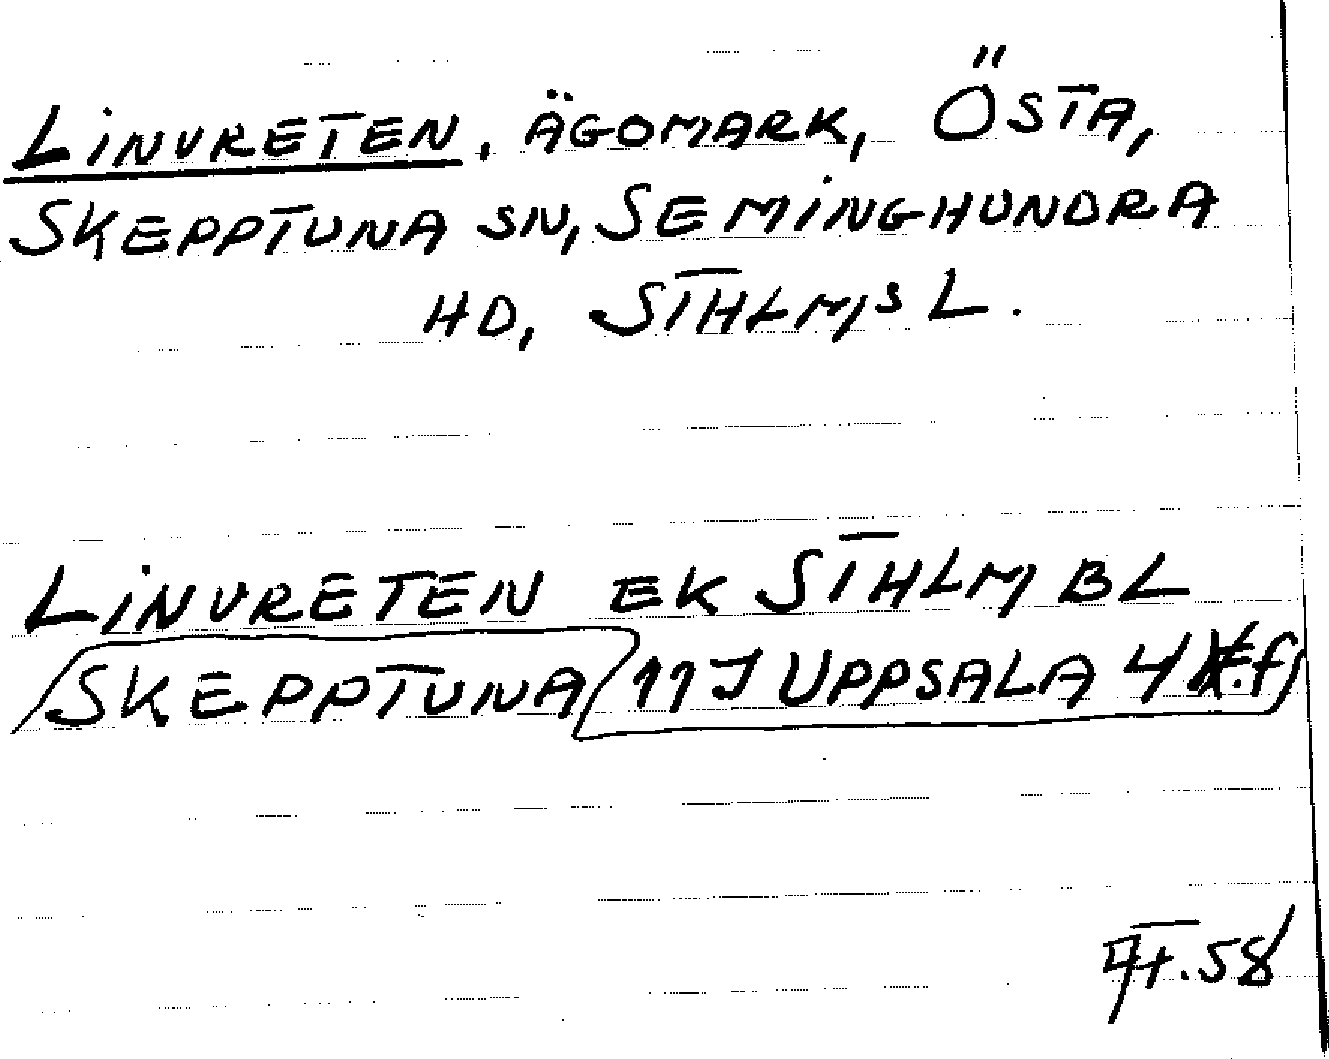 LINVRETEN, ÄGOMARK, ÖSTA,
SKEPPTUNA SN, SEMINGHUNDRA
HD, STHLMS L.
LINVRETEN EK STHLM BL
SKEPPTUNA 11 J UPPSALA 4
.58